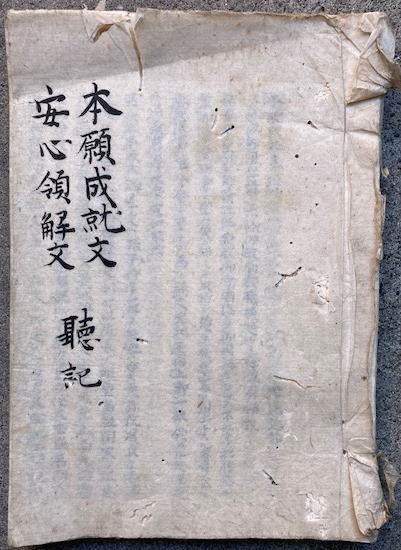 本願成就文
安心領解文
聽記